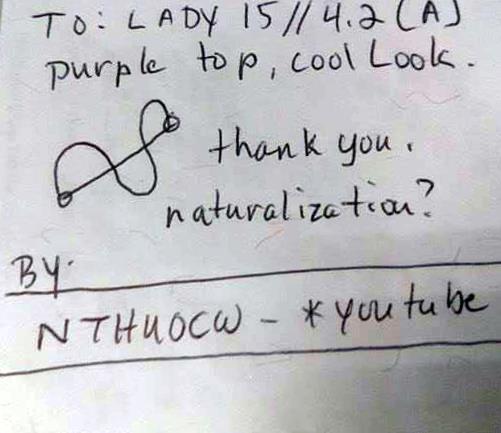 TO: LADY 15//4.2(A)
purple top, cool Look.
thank you.
naturalization?
BY:
NTHUOCW - *youtube